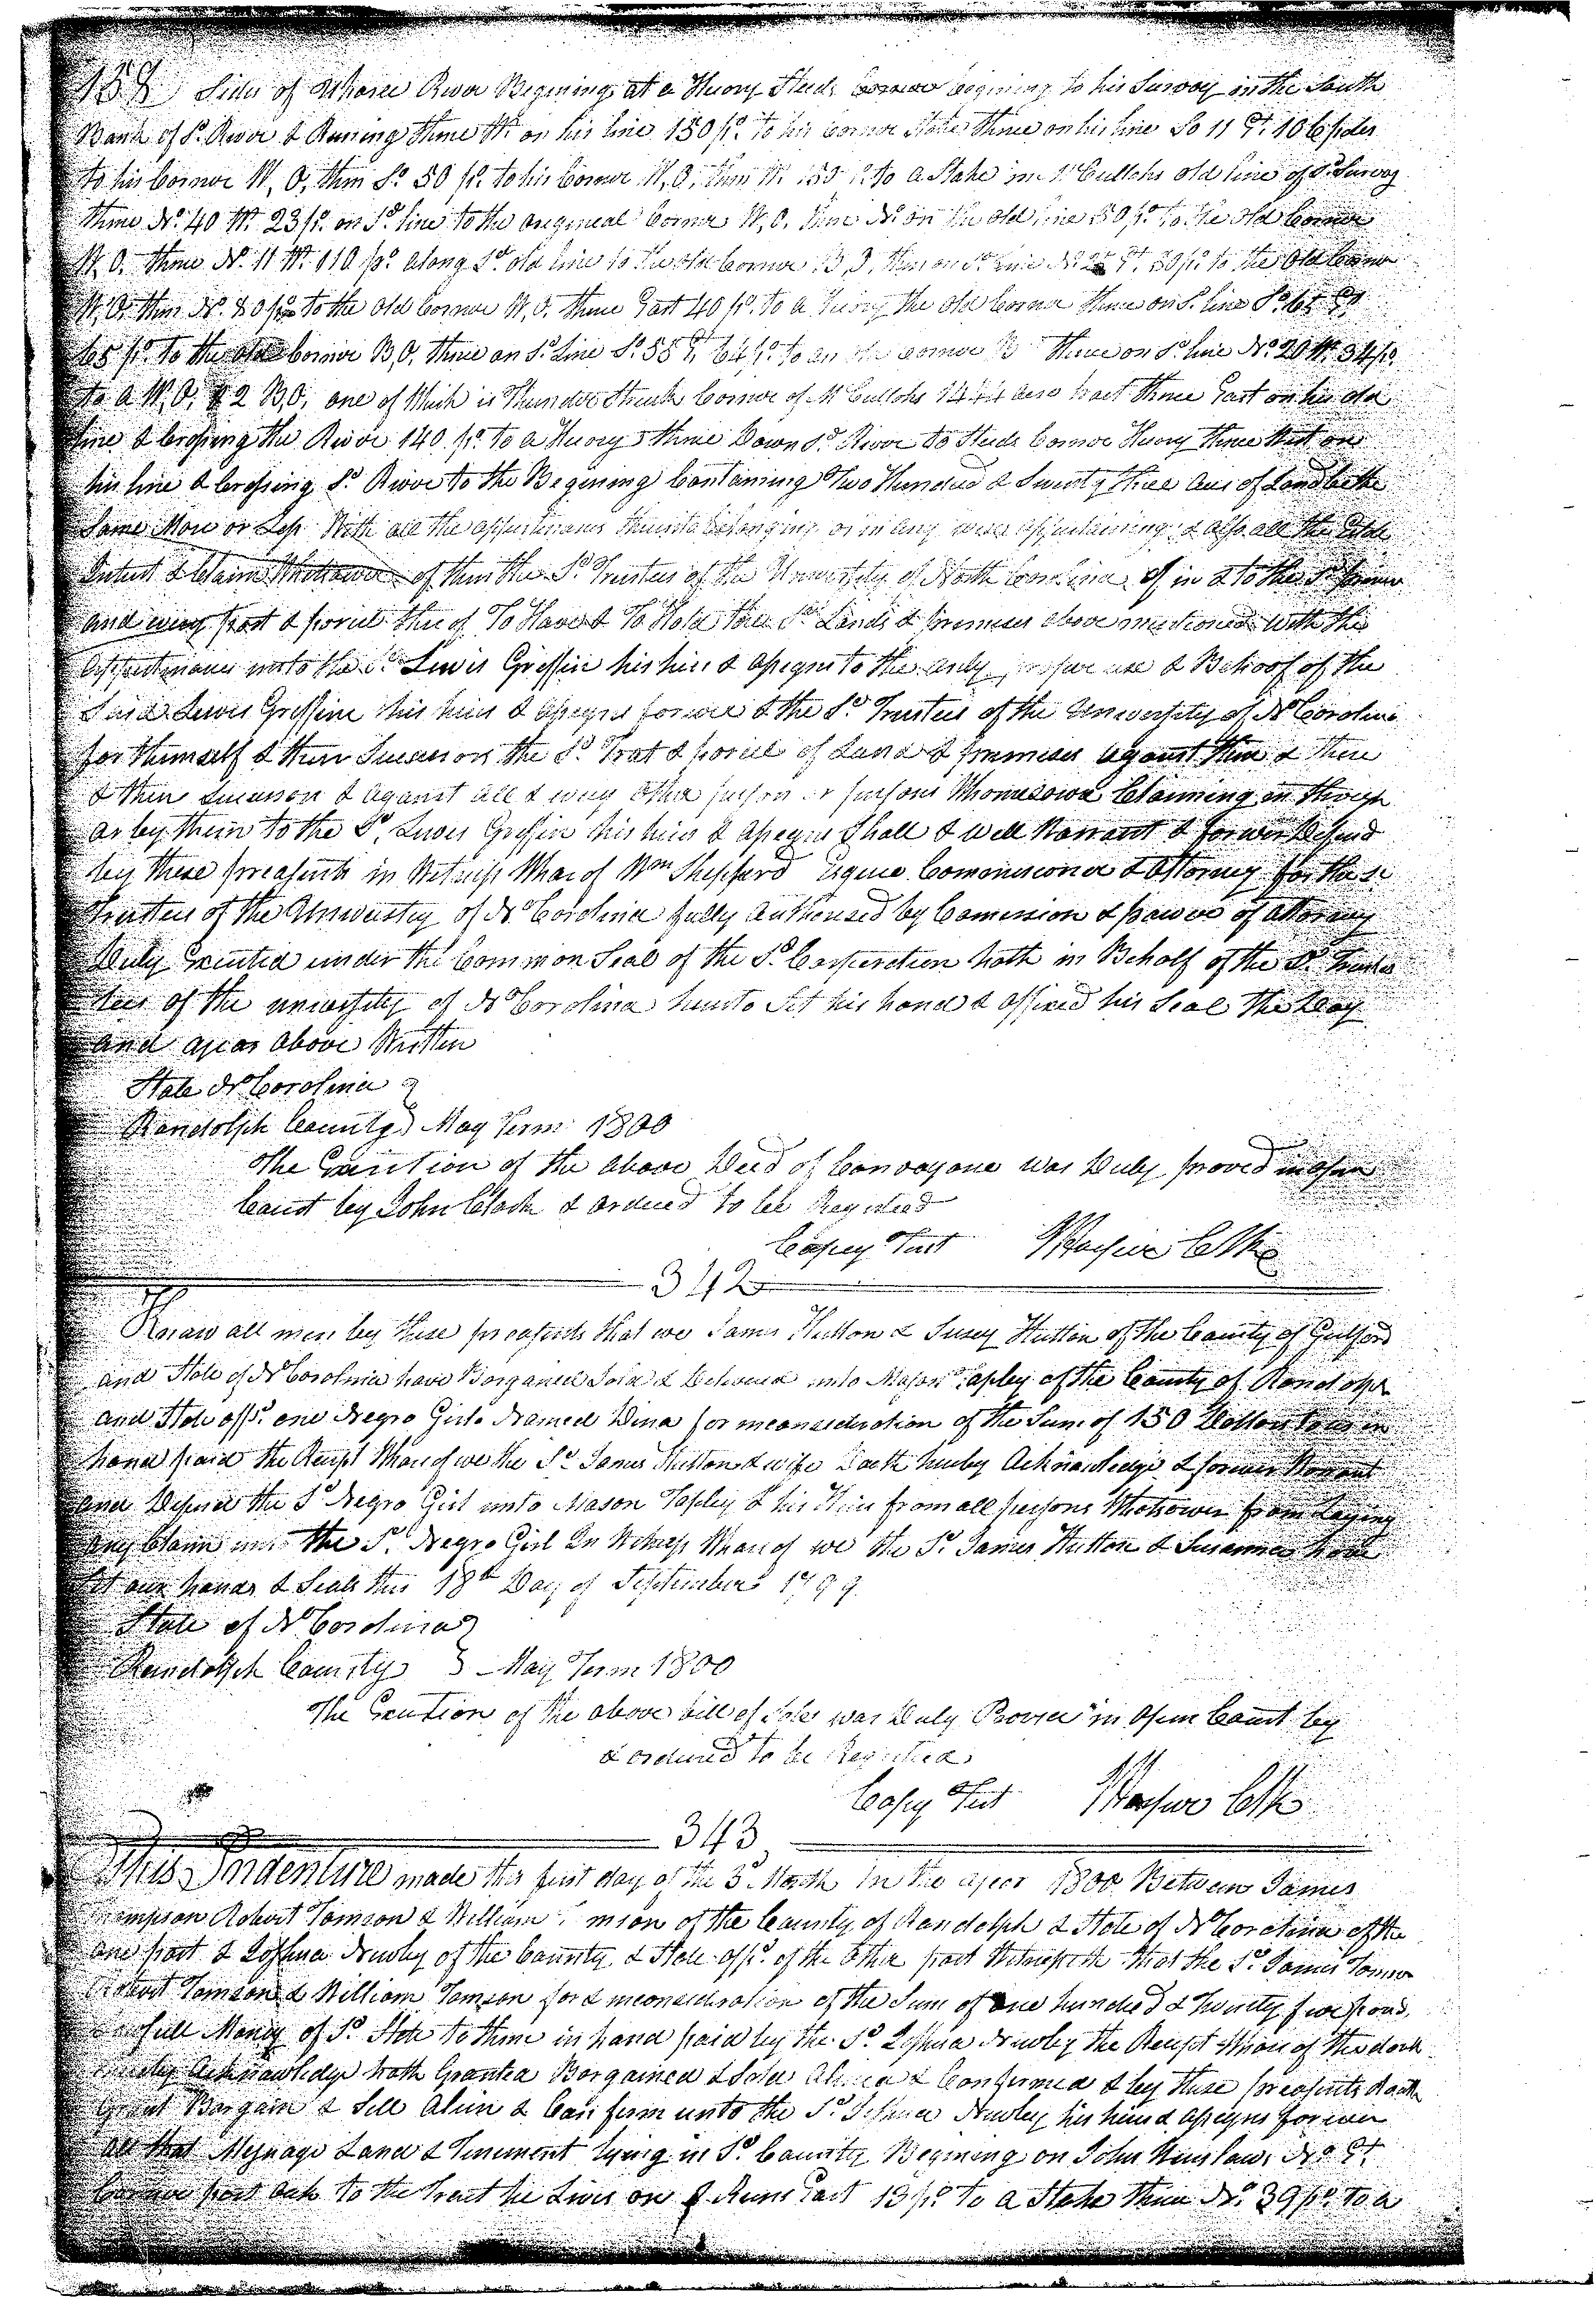 Sides of River Begining at a Hicory Steeds Corner begining to his Survay in the South
Bank of sd. River & Runing thence Wt. on his line 150 po. to his corner Stake thence on his line So 11 Et. 106 poles
to his Cornor W, O, then So. 50 po. to his Corner W, O, then Wt. po. to a Stake in McCullohs old line of sd. Survey
thence No. 40 Wt. 23 po. on sd. line to the origineal Corner W, O, thence No. on the old line 50 po. to the old Corner
W, O. thence No. 11 Wt. 110 po. along sd. old line to the old Corner B, O, then on sd. line Et. 50 po. to the Old Corner
W, O. then No. 80 po. to the old Cornor W, O. thence East 40 po. to a Hicory the old Cornor thence on sd. line So.
65 po. to the old Cornor B, O, thence on sd. Line So. 55 Et. 64 po. to an old corner B thence on sd. line No. 20 Wt. 34 po.
to a W, O, & 2 B, O, one of Which is Thunder Struck Cornor of McCullohs acre tract thence East on his old
line & Crossing the River 140 po. to a Hicory thence Down sd. River to Steeds Cornor Hicory thence West on
his line & Crossing sd. River to the Begining Containing Two Hundred & Twenty three acres of Land be the
Same More or Less With all the appurtinances thereto belonging or in any wise appurtaining & also all the Estate
Intrest & Claim Whatsover of them the sd. Trustees of the University of North Carolina of in & to the sd. premises
and every part & parcel thereof To Have & To Hold the sd. Lands & premises above mentioned with the
appurtinances unto the sd. Lewis Griffin his heirs & assigns to the only proper use & Behoof of the
Said Lewis Griffin his heirs & assigns forever & the sd. Trustees of the University of No Carolina
for themself & their Successors the sd. Tract & parcel of Land & premises against them & there
& their sucessors & against all & every other person or persons Whomsoever Claiming in through
or by them to the sd. Lewis Griffin his heirs & assigns Shall & will Warrant & forever Defend
by these preasents in Witness Whareof Wm Sheppard Esquire Commissioner & attorney for the sd.
Trustees of the University of No Carolina fully authorised by Comission & power of attorney
Duly Executed under the Common Seal of the sd. Corporation hath in Behalf of the sd. Trus
tees of the university of No Carolina hereto Set his hand & affixed his Seal the Day
and year above Written
State No Carolina
Randolph County May Term 1800
The Execution of the above Deed of Convayance was Duly proved in open
Court by John Clark & ordered to be Registered
Copey Test Harper Clk
342
Know all men by these preasents that we James Hutton & Susey Hutton of the County of Guilford
and State of No Carolina have Barganed Sold & Delivered unto Mason Tapley of the County of Randolph
and State affsd. one Negro Girl Named Dina for inconsideration of the Sum of 150 Dollars to us in
hand paid the Receipt Whareof we the sd. James Hutton & wife Doth hereby Acknowledge & forever Warant
and Defend the sd. Negro Girl unto Mason Tapley & his Heirs from all persons Whatsover from Laying
any Claim unto the sd. Negro Girl In Witness Whareof we the sd. James Hutton & Susanna have
Set our hands & Seals this 18th Day of September 1799
State of No Carolina
Randolph County May Term 1800
The Execution of the above bill of Sale was Duly Proved in Open Court by
& ordered to be Registered
Copy Test Harper Clk
343
This Indenture made this first day of the 3d. Month In the year 1800 Between James
Robert Tomson & William of the County of Randolph & State of No Carolina of the
one part & Joshua Newby of the County & State affsd. of the other part Witnesseth that the sd. James Tomson
Robert Tomson & William Tomson for & inconsideration of the Sum of one hundred & Twenty five pounds
Money of sd. State to them in hand paid by the sd. Joshua Newby the Receipt Whareof they doth
hereby Acknowledge hath Granted Bargained & Sold Aliened & Confirmed & by these preasents doth
Grant Bargain & Sell Alien & Confirm unto the sd. Joshua Newby his heirs & assigns forever
all that Messuage Land & Tenement lying in sd. County Begining on John No. Et.
Cornor post oak to the tract he Lives on & Runs East 13 po. to a Stake thence No. 39 po. to a